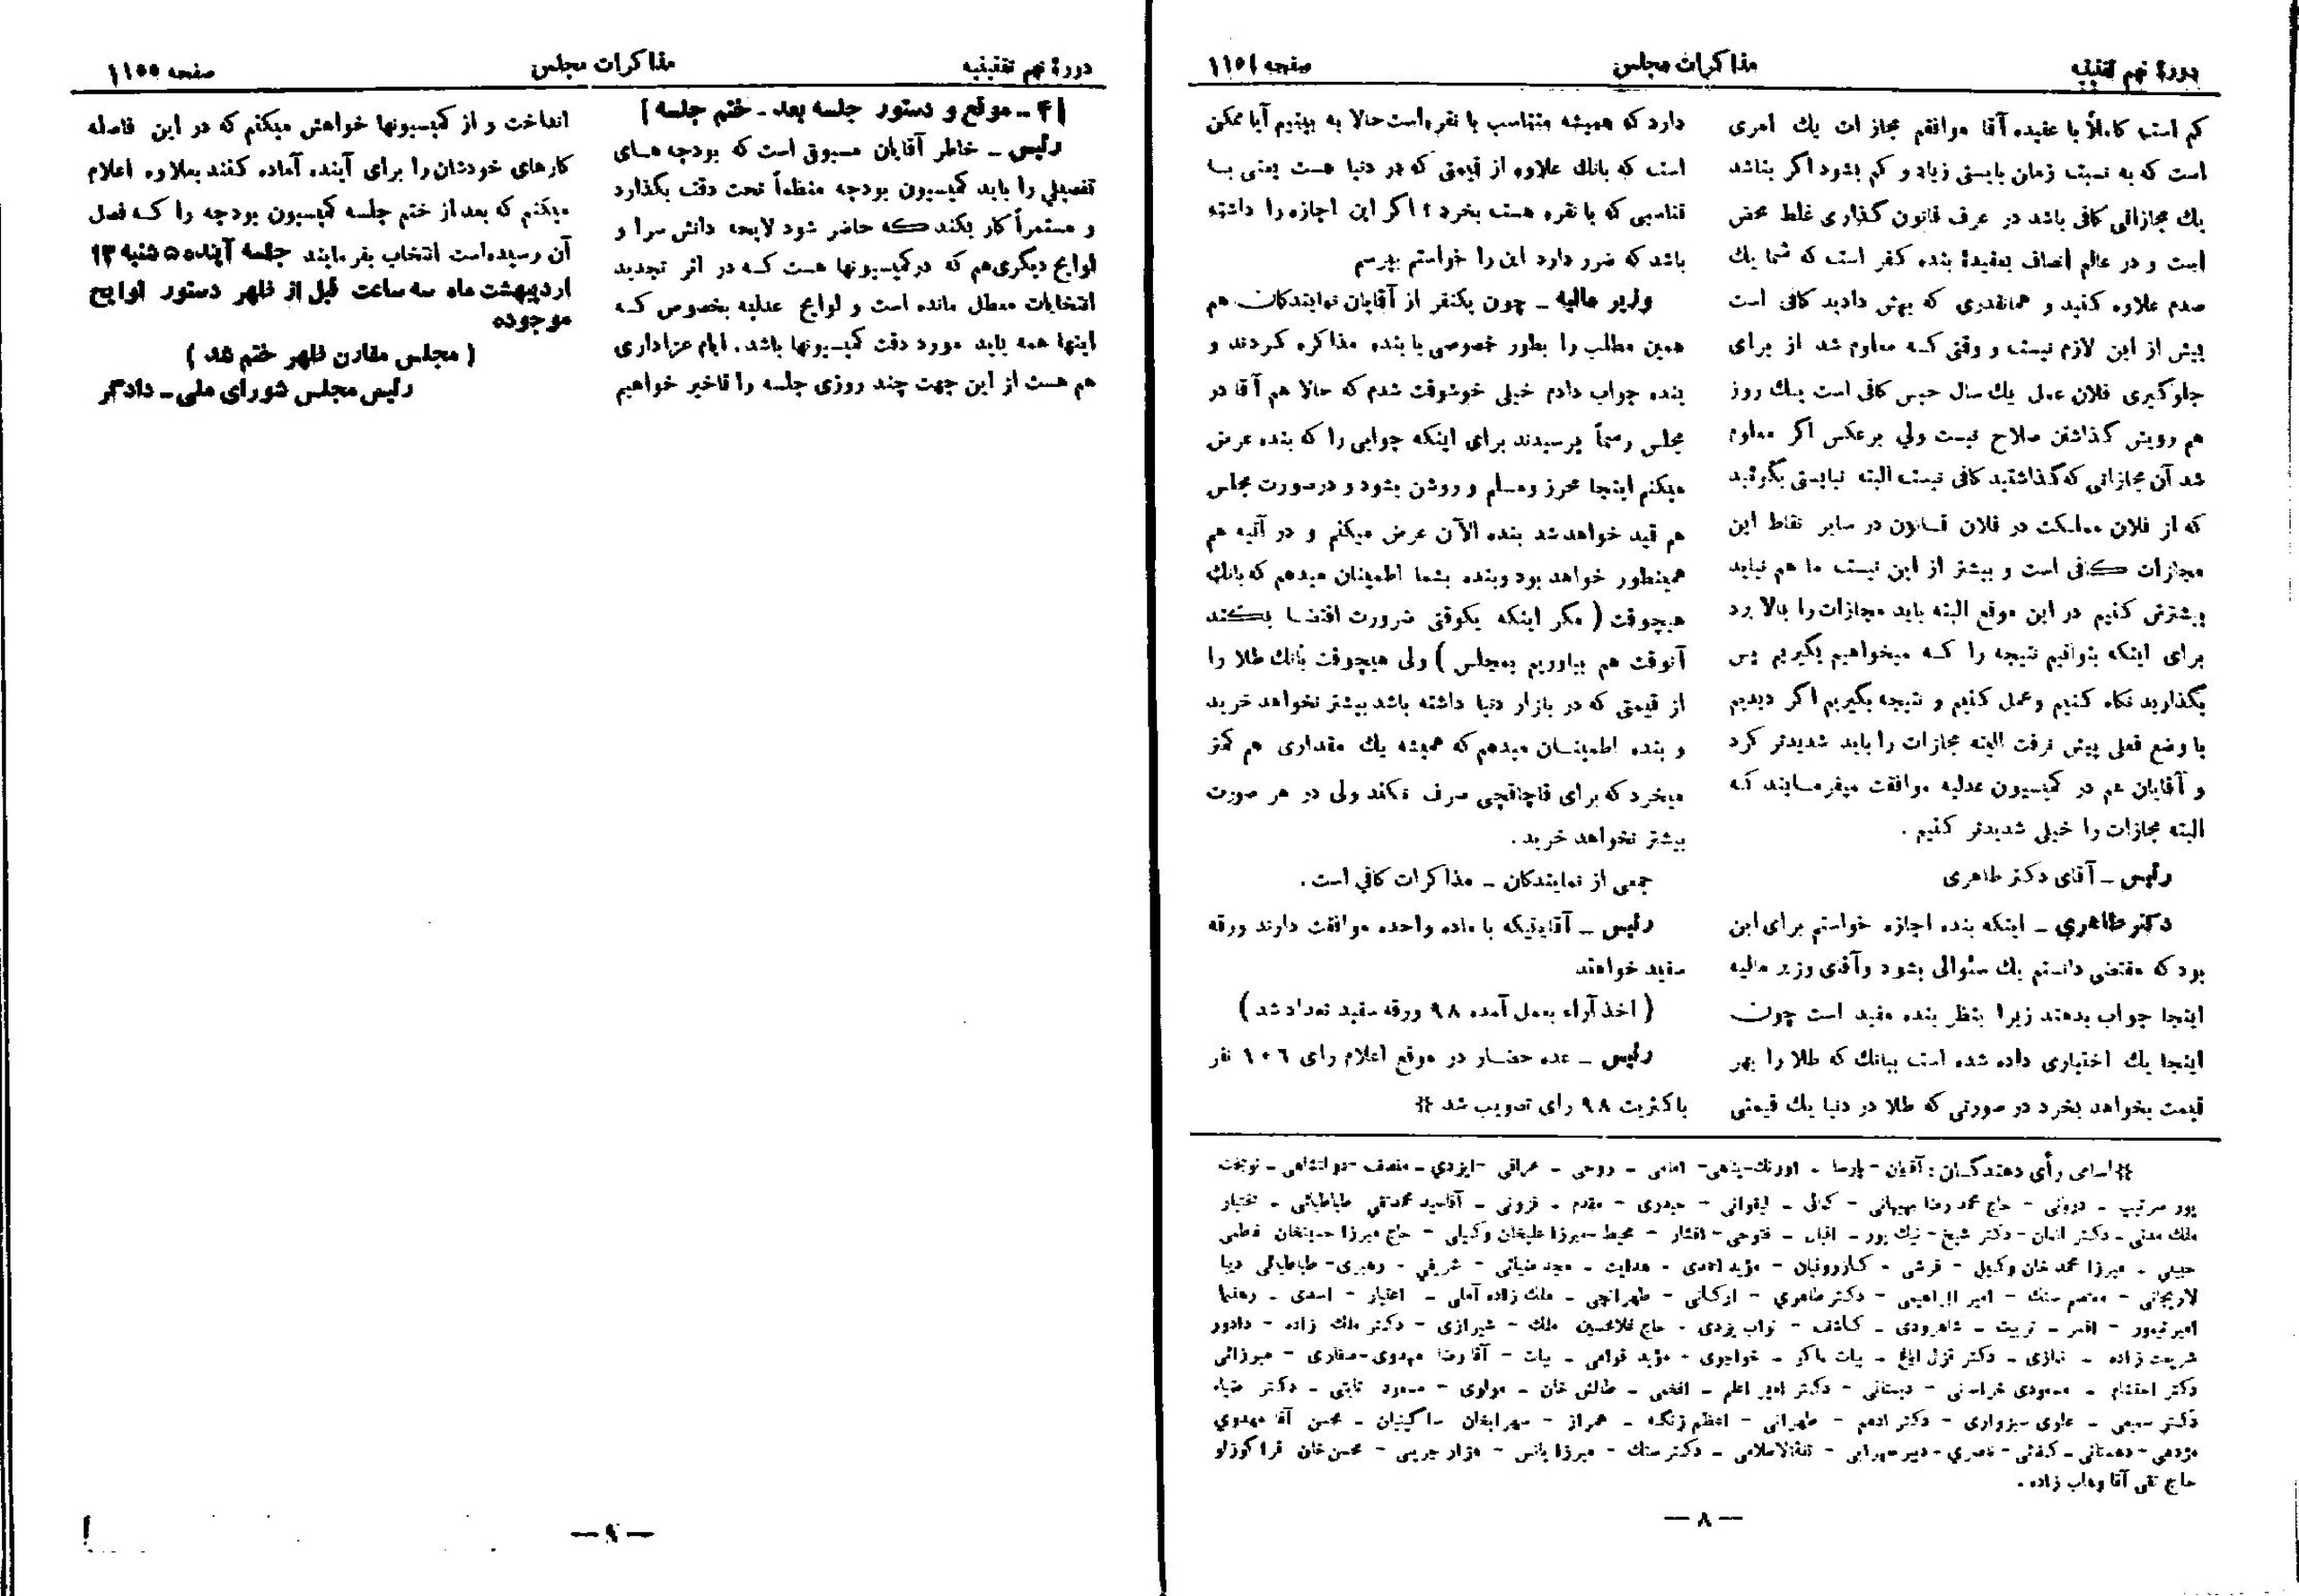 دورهٔ نهم تقنینیه
مذاکرات مجلس
صفحه ۱۱۵۴
کم است کاملاً با عقیده آقا موافقم مجازات یك امری
است که به نسبت زمان بایستی زیاد و کم بشود اگر بناشد
یك مجازاتی کافی باشد در عرف قانون گذاری غلط محض
است و در عالم انصاف بعقیدهٔ بنده کفر است که شما یك
صدم علاوه کنید و همانقدری که بهش دادید کافی است
بیش از این لازم نیست و وقتی که معلوم شد از برای
جلوگیری فلان عمل یك سال حبس کافی است یك روز
هم رویش گذاشتن صلاح نیست ولی برعکس اگر معلوم
شد آن مجازاتی که گذاشتید کافی نیست البته نبایستی بگوئید
که از فلان مملکت در فلان قانون در سایر نقاط این
مجازات کافی است و بیشتر از این نیست ما هم نباید
بیشترش کنیم در این موقع البته باید مجازات را بالا برد
برای اینکه بتوانیم نتیجه را که میخواهیم بگیریم پس
بگذارید نگاه کنیم و عمل کنیم و نتیجه بگیریم اگر دیدیم
با وضع فعلی پیش نرفت البته مجازات را باید شدیدتر کرد
و آقایان هم در کمیسیون عدلیه موافقت میفرمایند که
البته مجازات را خیلی شدیدتر کنیم .
رئیس ــ آقای دکتر طاهری
دکتر طاهری ــ اینکه بنده اجازه خواستم برای این
بود که مقتضی دانستم یك سئوالی بشود و آقای وزیر مالیه
اینجا جواب بدهند زیرا بنظر بنده مفید است چون
اینجا یك اختیاری داده شده است ببانك که طلا را بهر
قیمت بخواهد بخرد در صورتی که طلا در دنیا یك قیمتی
دارد که همیشه متناسب با نقره است حالا به بینیم آیا ممکن
است که بانك علاوه از قیمتی که در دنیا هست یعنی با
تناسبی که با نقره هست بخرد ؟ اگر این اجازه را داشته
باشد که ضرر دارد این را خواستم بپرسم
وزیر مالیه ــ چون یکنفر از آقایان نمایندکان هم
همین مطلب را بطور خصوصی با بنده مذاکره کردند و
بنده جواب دادم خیلی خوشوقت شدم که حالا هم آقا در
مجلس رسماً پرسیدند برای اینکه جوابی را که بنده عرض
میکنم اینجا محرز و مسلم و روشن بشود و در صورت مجلس
هم قید خواهد شد بنده الآن عرض میکنم و در آتیه هم
همینطور خواهد بود و بنده بشما اطمینان میدهم که بانك
هیچوقت ( مگر اینکه یکوقتی ضرورت اقتضا بکند
آنوقت هم بیاوریم بمجلس ) ولی هیچوقت بانك طلا را
از قیمتی که در بازار دنیا داشته باشد بیشتر نخواهد خرید
و بنده اطمینان میدهم که همیشه یك مقداری هم کمتر
میخرد که برای قاچاقچی صرف نکند ولی در هر صورت
بیشتر نخواهد خرید .
جمعی از نمایندکان ــ مذاکرات کافی است .
رئیس ــ آقایانیکه با ماده واحده موافقت دارند ورقه
سفید خواهند
( اخذ آراء بعمل آمده ۹۸ ورقه سفید تعداد شد )
رئیس ــ عده حضار در موقع اعلام رای ۱۰۶ نفر
باکثریت ۹۸ رای تصویب شد #
# اسامی رأی دهندکان : آقایان - پارسا - اورنك - پناهی - امامی - روحی - عراقی - ایزدی - منصف - دولتشاهی - نوبخت
پور سرتیپ - درونی - حاج محمد رضا بهبهانی - کمالی - لیقوانی - حیدری - مقدم - قزونی - آقاسید محمدتقی طباطبائی - بختیار
ملك مدنی - دکتر لقمان - دکتر شیخ - نیك پور - اقبال - فتوحی - افشار - محیط - میرزا علیخان وکیلی - حاج میرزا حسینخان فطمی
حبیبی - میرزا محمد خان وکیل - قرشی - کازرونیان - مؤید احمدی - هدایت - مجد ضیائی - شریفی - رهبری - طباطبائی دیبا
لاریجانی - معتصم سنك - امیر ابراهیمی - دکتر طاهری - ارکانی - طهرانچی - ملك زاده آملی - اعتبار - اسدی - رهنما
امیر تیمور - افسر - تربیت - شاهرودی - کاشف - نواب یزدی - حاج غلامحسین ملك - شیرازی - دکتر ملك زاده - دادور
شریعت زاده - نمازی - دکتر قزل ایاغ - بیات ماکو - خواجوی - مؤید قوامی - بیات - آقا رضا مهدوی - صفاری - میرزائی
دکتر احتشام - مسعودی خراسانی - دبستانی - دکتر امیر اعلم - افخمی - طالش خان - مولوی - مسعود ثابتی - دکتر ضیاء
دکتر سمیعی - علوی سبزواری - دکتر ادهم - طهرانی - اعظم زنگنه - همراز - سهرابخان ساکینیان - محسن آقا مهدوی
مژدهی - دهستانی - کیفئی - ناصری - دبیر سهرابی - ثقةالاسلامی - دکتر سنك - میرزا یانس - هزار جریبی - محسن خان قراکوزلو
حاج تقی آقا وهاب زاده .
— ۸ —
دورهٔ نهم تقنینیه
مذاکرات مجلس
صفحه ۱۱۵۵
[ ۴ ــ موقع و دستور جلسه بعد ــ ختم جلسه ]
رئیس ــ خاطر آقایان مسبوق است که بودجه های
تفصیلی را باید کمیسیون بودجه منظماً تحت دقت بگذارد
و مستمراً کار بکند که حاضر شود لایحه دانش سرا و
لوایح دیگری هم که در کمیسیونها هست که در اثر تجدید
انتخابات معطل مانده است و لوایح عدلیه بخصوص که
اینها همه باید مورد دقت کمیسیونها باشد . ایام عزاداری
هم هست از این جهت چند روزی جلسه را تاخیر خواهیم
انداخت و از کمیسیونها خواهش میکنم که در این فاصله
کارهای خودشان را برای آینده آماده کنند بعلاوه اعلام
میکنم که بعد از ختم جلسه کمیسیون بودجه را که فصل
آن رسیده است انتخاب بفرمایند جلسه آینده ۵ شنبه ۱۳
اردیبهشت ماه سه ساعت قبل از ظهر دستور لوایح
موجوده
( مجلس مقارن ظهر ختم شد )
رئیس مجلس شورای ملی ــ دادگر
— ۹ —